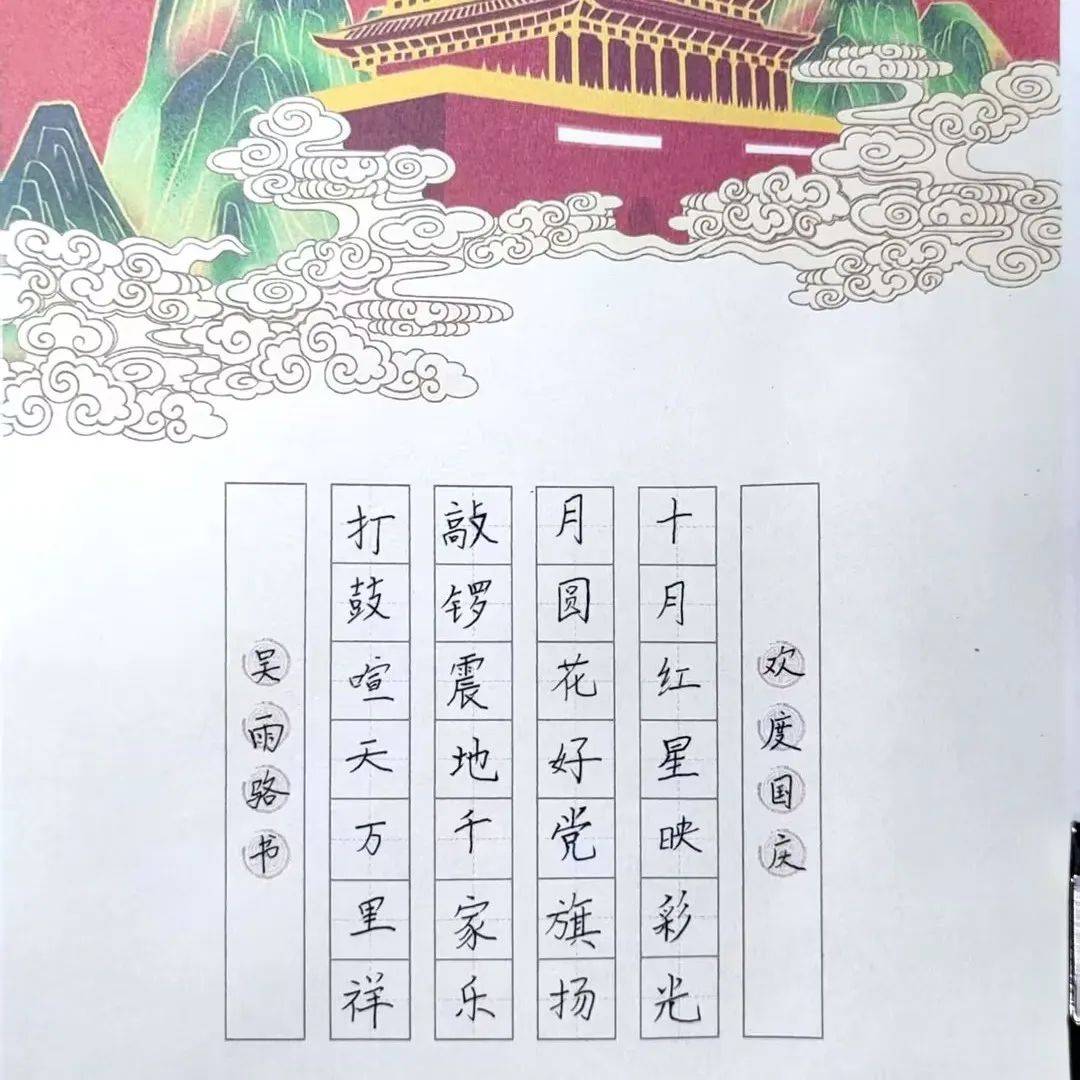 欢度国庆
十月红星映彩光
月圆花好党旗扬
敲锣震地千家乐
打鼓喧天万里祥
吴雨骆书